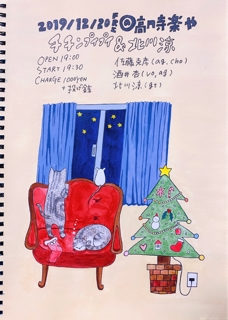 2019/12/20 FRI @高円寺楽や
チチンプイプイ & 北川涼
OPEN 19:00
START 19:30
CHARGE 1000YEN
+投げ銭
佐藤克彦(a.g, cho)
酒井杏(vo, a.g)
北川涼(